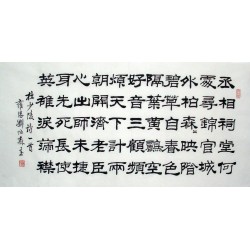 丞相祠堂何
處尋錦官城
外柏森〻映階
碧草自春色
隔葉黃鸝空
好音三顧頻
煩天下計兩
朝開濟老臣
心出師未捷
身先死長使
英雄淚滿襟
杜少陵詩一首
雍陽劉炳森書